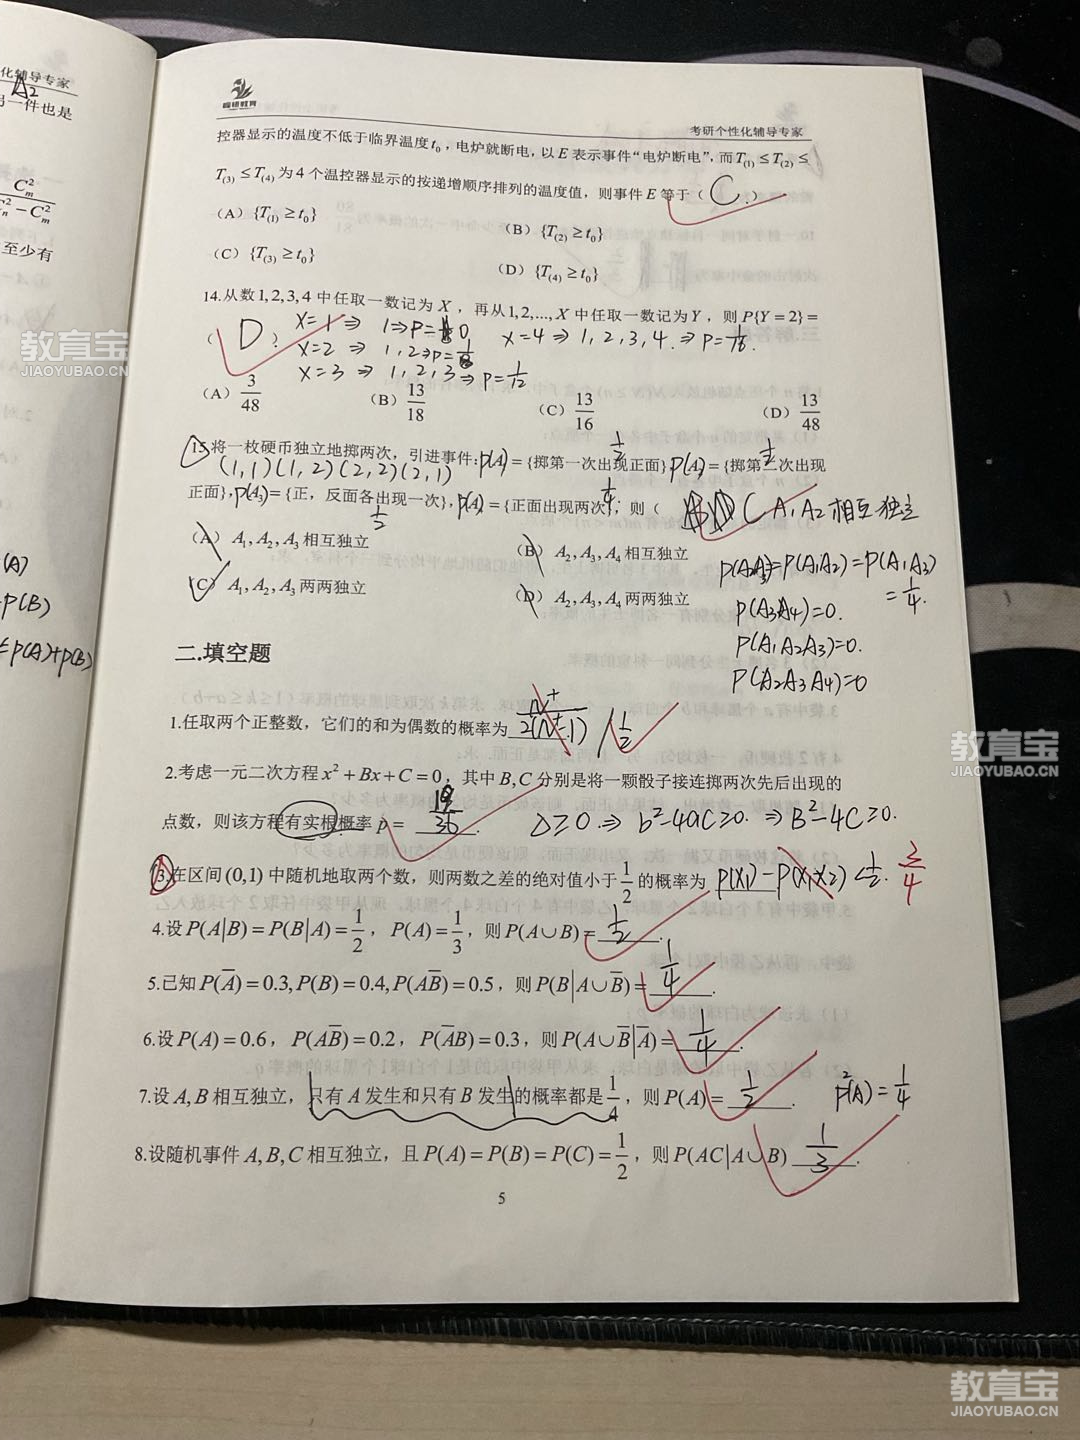 化辅导专家
A2
另一件也是
C_m^2
C_n^2 - C_m^2
至少有
(A)
P(B)
P(A)+P(B)
考研个性化辅导专家
控器显示的温度不低于临界温度t_0，电炉就断电，以E表示事件“电炉断电”，而T_(1) ≤ T_(2) ≤
T_(3) ≤ T_(4) 为4个温控器显示的按递增顺序排列的温度值，则事件E等于（ C ）
（A）{T_(1) ≥ t_0}
（B）{T_(2) ≥ t_0}
（C）{T_(3) ≥ t_0}
（D）{T_(4) ≥ t_0}
14.从数1,2,3,4中任取一数记为X，再从1,2,...,X中任取一数记为Y，则P{Y=2}=
（ D ）
X=1 ⇒ 1 ⇒ P=0
X=2 ⇒ 1,2 ⇒ P=1/8
X=3 ⇒ 1,2,3 ⇒ P=1/12
X=4 ⇒ 1,2,3,4. ⇒ P=1/16.
（A）3/48
（B）13/18
（C）13/16
（D）13/48
15.将一枚硬币独立地掷两次，引进事件:P(A1)={掷第一次出现正面} 1/2 P(A2)={掷第二次出现 1/2
(1,1)(1,2)(2,2)(2,1)
正面},P(A3)={正，反面各出现一次} 1/2,P(A4)={正面出现两次} 1/4，则（ C A1,A2相互独立
（A）A1,A2,A3相互独立
（B）A2,A3,A4相互独立
（C）A1,A2,A3两两独立
（D）A2,A3,A4两两独立
P(A2A3)=P(A1A2)=P(A1A3)
=1/4.
P(A3A4)=0.
P(A1A2A3)=0.
P(A2A3A4)=0
二.填空题
1.任取两个正整数，它们的和为偶数的概率为 1/2
2.考虑一元二次方程x²+Bx+C=0，其中B,C分别是将一颗骰子接连掷两次先后出现的
点数，则该方程有实根概率p= 19/36 . Δ≥0 ⇒ b²-4ac≥0. ⇒ B²-4C≥0.
3.在区间(0,1)中随机地取两个数，则两数之差的绝对值小于1/2的概率为 P(X1)-P(X1X2)<1/2. 3/4
4.设P(A|B)=P(B|A)=1/2，P(A)=1/3，则P(A∪B)= 1/2 .
5.已知P(A̅)=0.3,P(B)=0.4,P(AB̅)=0.5，则P(B|A∪B̅)= 1/4 .
6.设P(A)=0.6，P(AB̅)=0.2，P(A̅B)=0.3，则P(A∪B̅|A̅)= 1/4 .
7.设A,B相互独立，只有A发生和只有B发生的概率都是1/4，则P(A)= 1/2 . P²(A)=1/4
8.设随机事件A,B,C相互独立，且P(A)=P(B)=P(C)=1/2，则P(AC|A∪B) 1/3 .
5
教育宝
JIAOYUBAO.CN
教育宝
JIAOYUBAO.CN
教育宝
JIAOYUBAO.CN